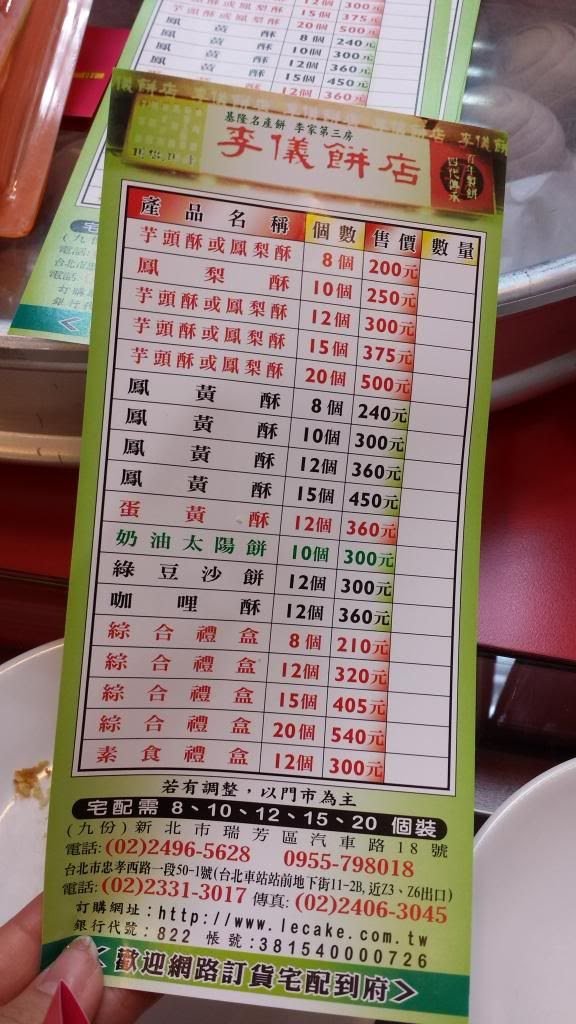 芋頭酥或鳳梨酥 12個 300元
芋頭酥或鳳梨酥 15個 375元
芋頭酥或鳳梨酥 20個 500元
鳳黃酥 8個 240元
鳳黃酥 10個 300元
鳳黃酥 12個 360元
鳳黃酥 15個 450元
12個 360元
基隆名產餅 李家第三房
李儀餅店
百年製餅
四代傳承
產品名稱 個數 售價 數量
芋頭酥或鳳梨酥 8個 200元
鳳梨酥 10個 250元
芋頭酥或鳳梨酥 12個 300元
芋頭酥或鳳梨酥 15個 375元
芋頭酥或鳳梨酥 20個 500元
鳳黃酥 8個 240元
鳳黃酥 10個 300元
鳳黃酥 12個 360元
鳳黃酥 15個 450元
蛋黃酥 12個 360元
奶油太陽餅 10個 300元
綠豆沙餅 12個 300元
咖哩酥 12個 360元
綜合禮盒 8個 210元
綜合禮盒 12個 320元
綜合禮盒 15個 405元
綜合禮盒 20個 540元
素食禮盒 12個 300元
若有調整，以門市為主
宅配需 8、10、12、15、20 個裝
(九份)新北市瑞芳區汽車路18號
電話:(02)2496-5628 0955-798018
台北市忠孝西路一段50-1號(台北車站站前地下街11-2B, 近Z3、Z6出口)
電話:(02)2331-3017 傳真:(02)2406-3045
訂購網址:http://www.lecake.com.tw
銀行代號:822 帳號:381540000726
<歡迎網路訂貨宅配到府>